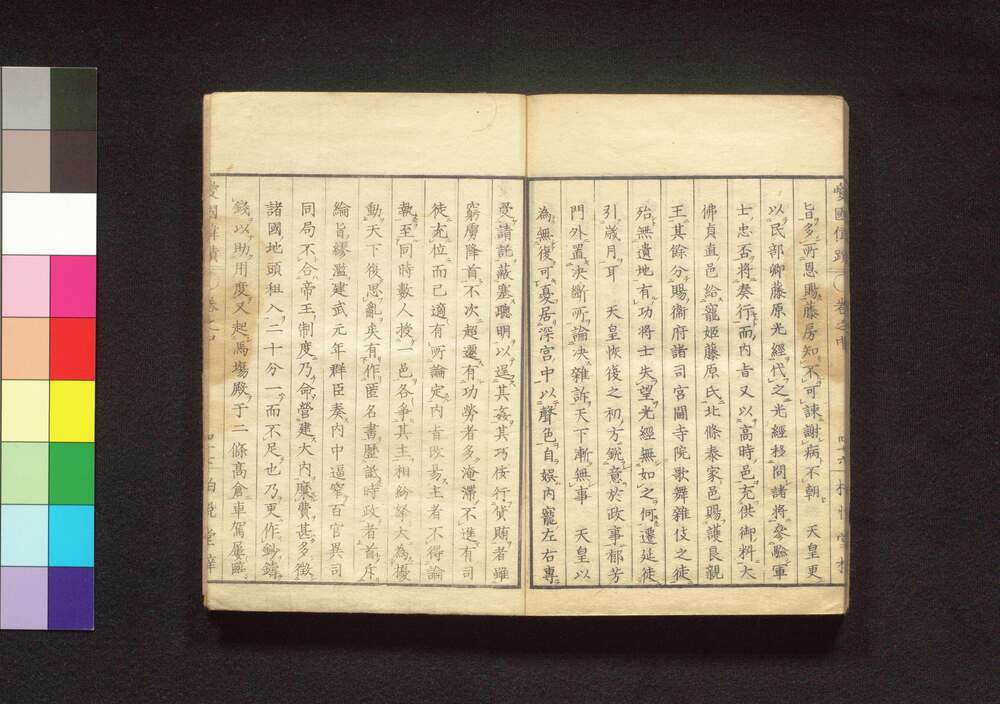 旨多所恩賜藤房知不可諫謝病不朝　天皇更
以民部卿藤原光經代之光經拯問諸將參驗軍
士忠否將奏行而内旨又以高時邑充供御料大
佛貞直邑給寵姬藤原氏北條泰家邑賜護良親
王其餘分賜衞府諸司宮闈寺院歌舞雜伎之徒
殆無遺地有功將士失望光經無如之何遷延徒
引歲月耳　天皇恢復之初方銳意於政事郁芳
門外置決斷所論決雜訴天下漸無事　天皇以
為無復可憂居深宮中以聲色自娛内寵左右專
受請託蔽塞聰明以逞其姦其巧佞行貨賄者雖
窮虜降首不次超遷有功勞者多淹滯不進有司
徒充位而已適有所論定内旨改易主者不得論
執至同時數人授一邑各爭其主相紛拏大為擾
動天下復思亂矣有作匿名書歷詆時政者首斥
綸旨繆濫建武元年群臣奏内中逼窄百官異司
同局不合帝王制度乃命營建大内糜費甚多徵
諸國地頭租入二十分一而不足也乃更作鈔鑄
錢以助用度又起馬塲殿于二條高倉車駕屢臨
愛國偉績　卷之中